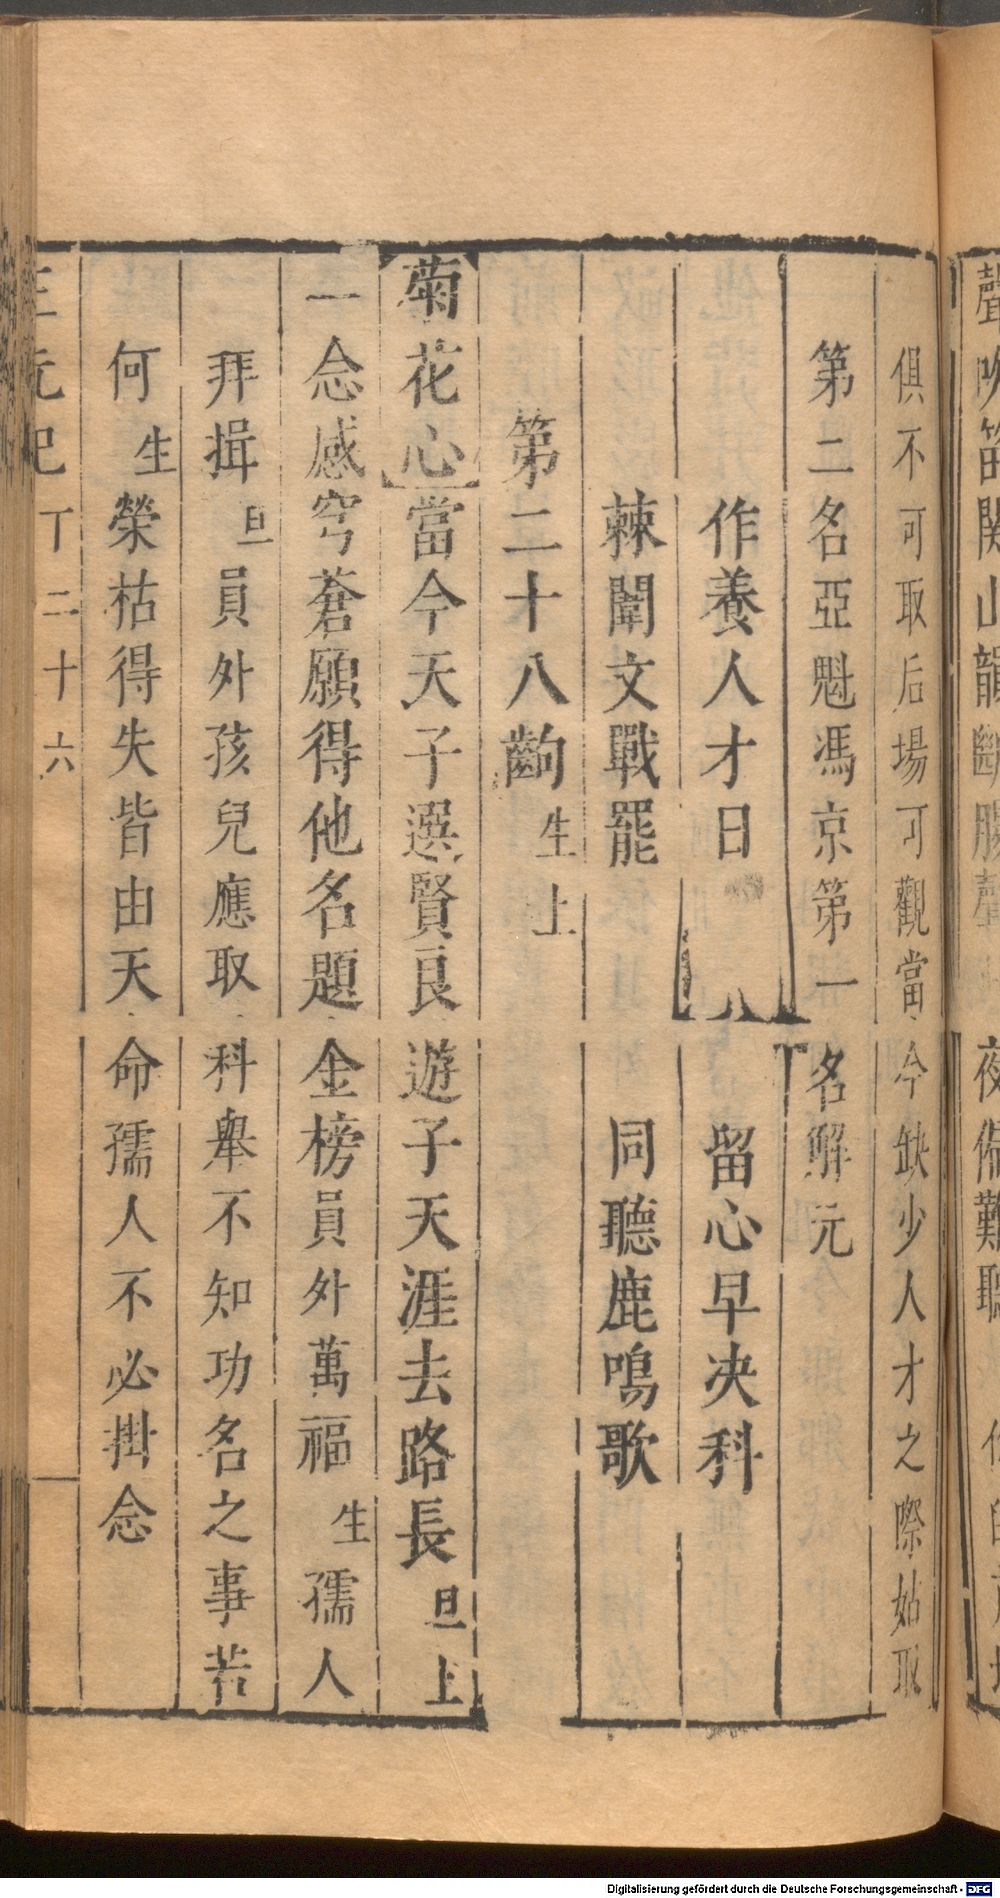 俱不可取后場可觀當今缺少人才之際姑取
第二名亞魁馮京第一名解元
作養人才日 留心早决科
棘闈文戰罷 同聽鹿鳴歌
第二十八齣 生上
菊花心當今天子選賢良遊子天涯去路長旦上
一念感穹蒼願得他名題金榜員外萬福生孺人
拜揖旦員外孩兒應取科舉不知功名之事若
何生榮枯得失皆由天命孺人不必掛念
三元記 丁二十六
Digitalisierung gefördert durch die Deutsche Forschungsgemeinschaft - DFG